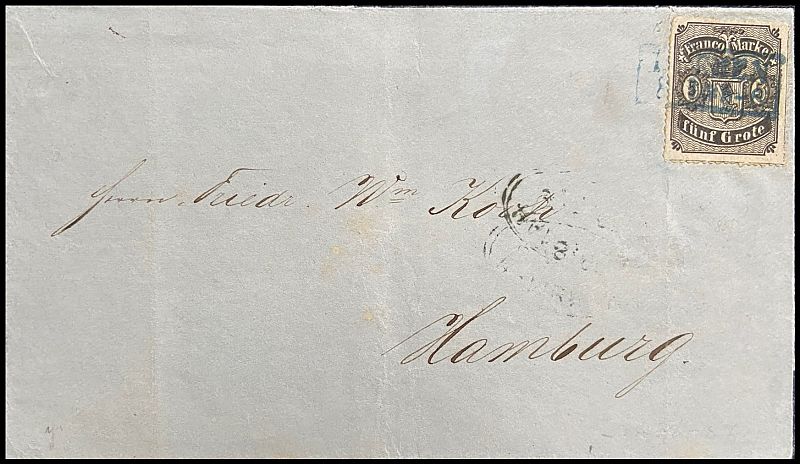 Franco Marke
5 5
fünf Grote
Herrn Friedr. Wm
Hamburg.